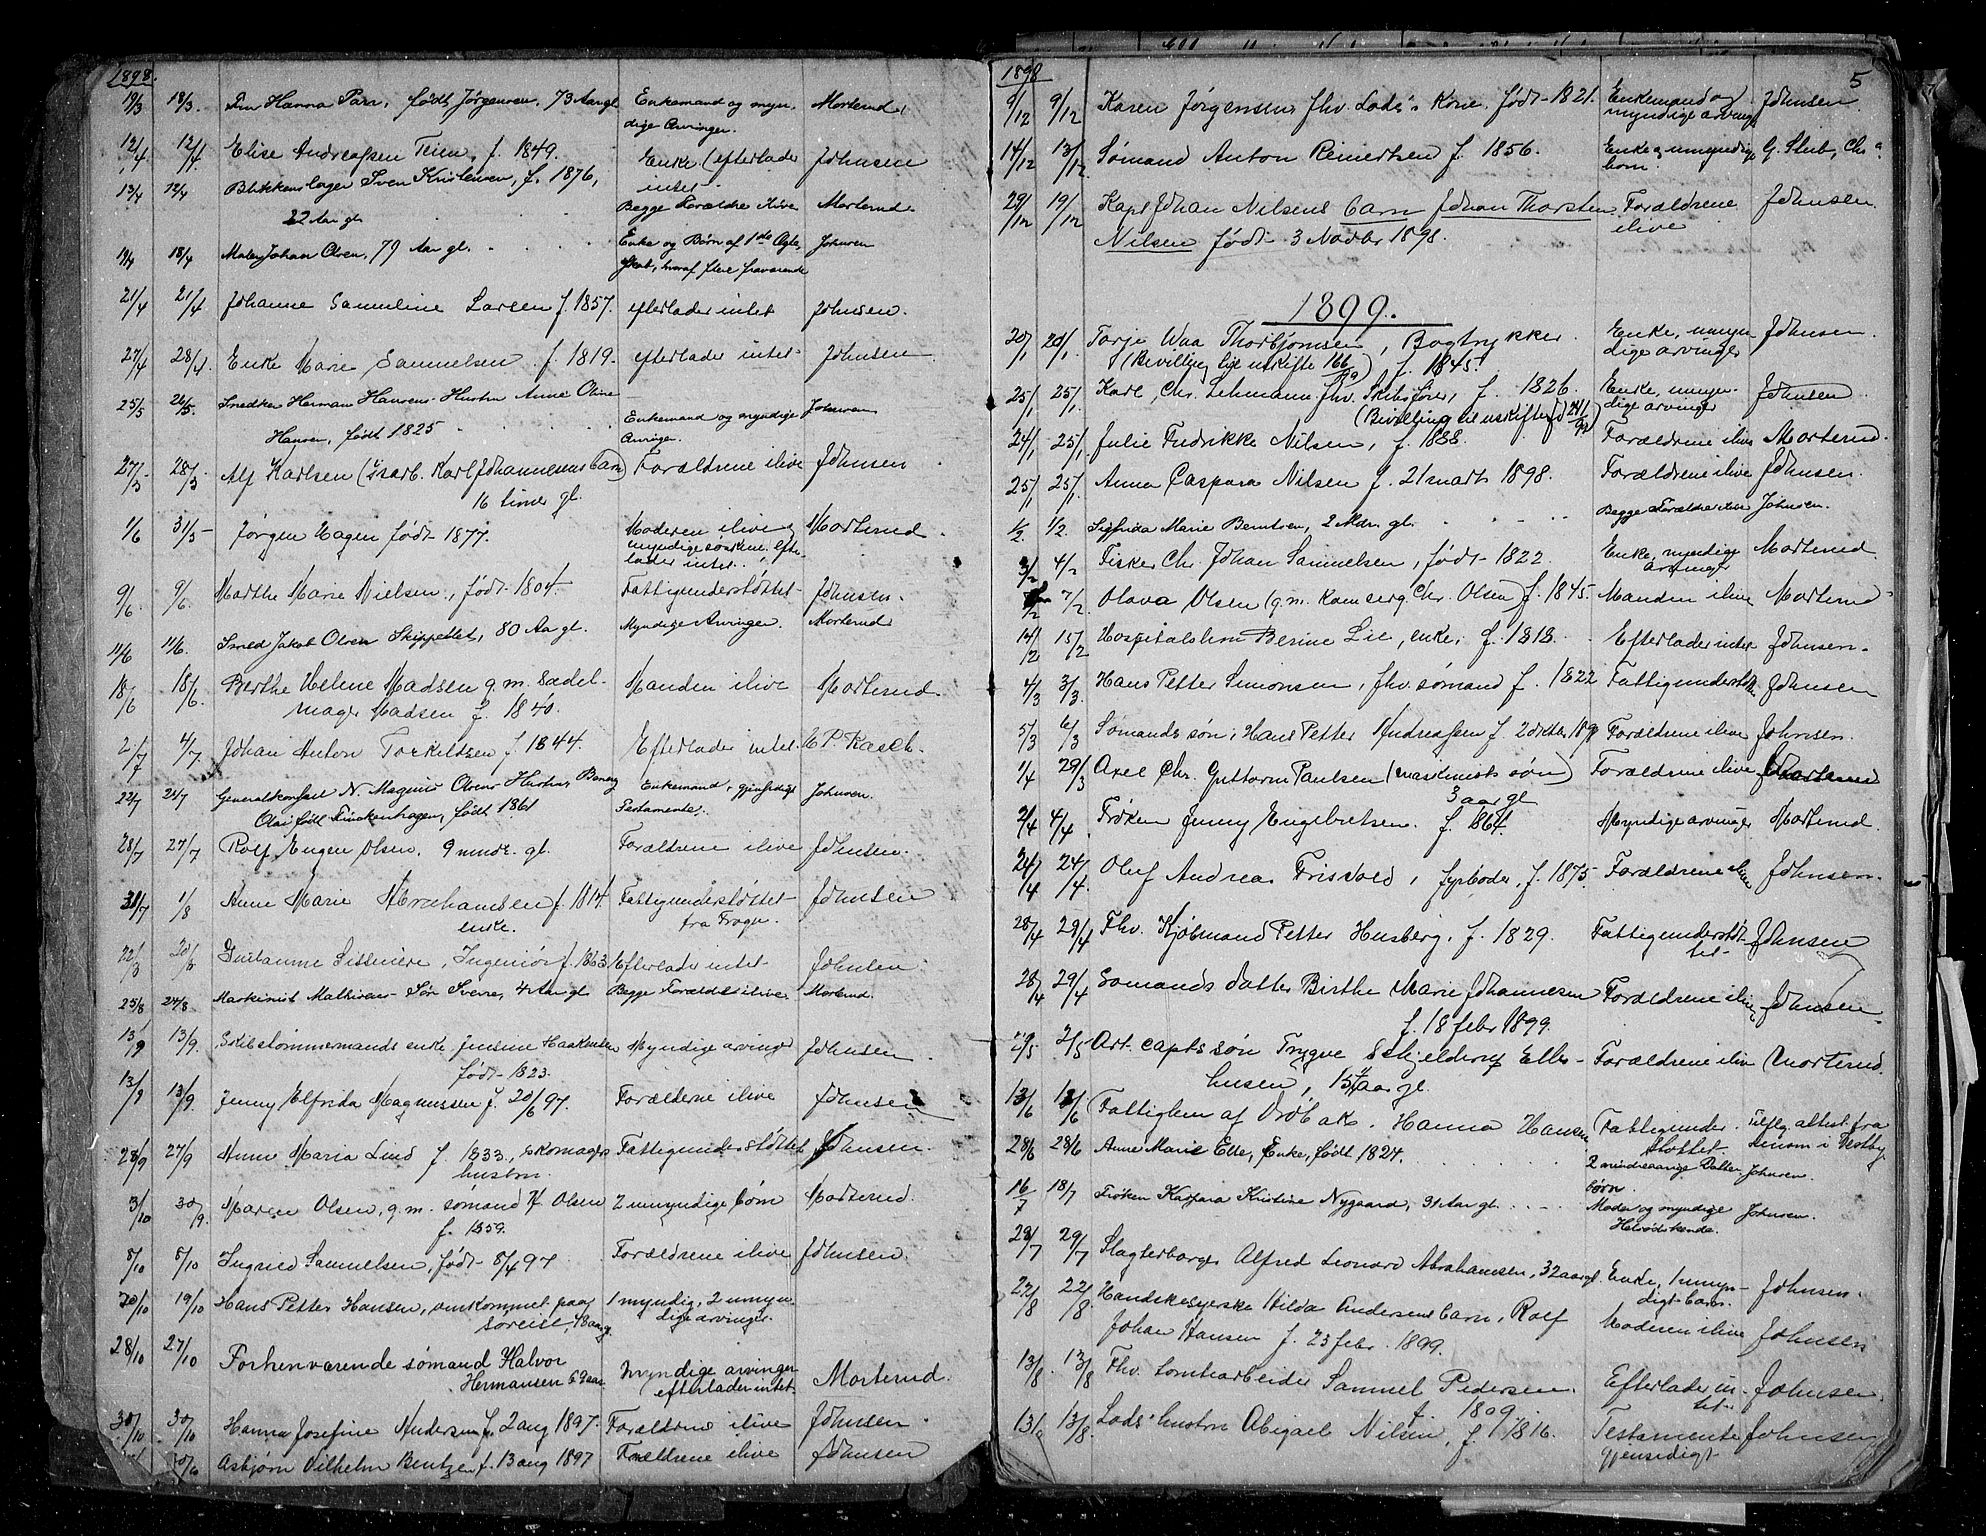 1898.
19/3 18/3. Fru Hanna Parr, født Jørgensen, 73 Aar gl. Enkemand og myn- Morterud.
dige Arvinger.
12/4 12/4. Elise Andreassen Teien, f. 1849. Enke (efterlader Johnsen
intet
13/4 12/4 Blikkenslager Sven Kristensen, f. 1876, Begge Forældre ilive Morterud.
22 Aar gl.
19/4 18/4 Maler Johan Olsen, 79 Aar gl. Enke og Børn af 1ste Ægte- Johnsen
skab, hvoraf flere fraværende
21/4 21/4 Johanne Samueline Larsen f. 1857. efterlader intet Johnsen.
27/4 28/4. Enke Marie Samuelsen f. 1819. efterlader intet Johnsen
25/5 26/5. Snedker Herman Hansens Hustru Anne Oline
Hansen, født 1825 Enkemand og myndige Johnsen
Arvinger.
27/5 28/5 Alf Karlsen (Isarb. Karl Johannesens barn) Forældrene ilive Johnsen
16 timer gl.
1/6 31/5 Jørgen Hagen født 1877. Moderen ilive, Morterud
myndige søsken. Efter-
lader intet.
9/6. 9/6. Marthe Marie Nielsen, født 1804. Fattigunderstøttet Johnsen.
11/6 11/6. Smed Jakob Olsen Skippeltet, 80 Aar gl. Myndige Arvinger. Morterud
18/6 18/6. Berthe Helene Madsen g.m. Sadel- Manden ilive Morterud.
mager Madsen f. 1840.
2/7 4/7. Johan Anton Torkildsen f. 1844. Efterlader intet E P. Rasch.
22/7 24/7 Generalkonsul N. Magnus Olsens Hustru,
født Finckenhagen, født 1861 Enkemand, gjensidigt Johnsen.
Testamente.
28/7 27/7 Rolf Eugen Olsen, 9 mndr. gl. Forældrene ilive Johnsen.
31/7 1/8 Anne Marie Abrahamsen f. 1814. Fattigunderstøttet Johnsen
enke. fra Frogn.
Ingeniør f. 1863 Efterlader intet Johnsen
25/8 24/8. Maskinist Mathisens Søn Sverre, 4 Aar gl. Begge Forældre ilive Morterud.
13/9 13/9. Skibstømmermands enke Jensine Haakensen Myndige arvinger Johnsen
født 1823.
13/9 13/9. Jenny Elfrida Magnussen f. 20/6 97. Forælderne ilive Johnsen
28/9 27/9 Anne Maria Lind f. 1833, skomagers Fattigunderstøttet Johnsen.
hustru
3/10 30/9. Maren Olsen, g.m. sømand H. Olsen 2 umyndige børn Morterud.
f. 1859.
8/10 8/10 Ingrid Samuelsen, født 8/4 97 Forældrene ilive Johnsen.
20/10 19/10 Hans Petter Hansen, omkommet paa 1 myndig, 2 umyn-
søreise, 48 aar gl. dige arvinger.
28/10 27/10 Forhenværende sømand Halvor Myndige arvinger Morterud.
Hermansen 59 aar efterlader intet.
30/10 30/10 Hanna Josefine Andersen f. 2 aug 1897. Forældrene ilive Johnsen
Asbjørn Vilhelm Bentzen f. 13 aug 1897 Forældrene ilive Johnsen
1898 5
9/12 9/12 Karen Jørgensen fhv. Lods's Kone. født 1821. Enkemand og Johnsen.
myndige arvinger
14/12 13/12 Sømand Anton Reinertsen f. 1856. Enke og umyndige G. Stub, Chr.a
børn.
29/12 19/12 Kapt Johan Nilsens barn Johan Thorsten Forældrene Johnsen.
Nilsen født 3 Novbr 1898. ilive
1899.
20/1 20/1. Torje Waa Thorbjørnsen, Bogtrykker. Enke, umyn- Johnsen.
(Bevilling til uskifte 16/6 99) f. 1845. dige arvinger
25/1 25/1. Karl Chr. Lehmann fhv. Skibsfører, f. 1826. Enke, umyn- Johnsen
(Bevilling til uskifte dige arvinger
24/1 25/1. Julie Fredrikke Nilsen, f. 1888. Forældrene ilive Morterud.
25/1 25/1. Anna Caspara Nilsen f. 21 marts 1898. Forældrene ilive Johnsen.
1/2 1/2. Sigfrida Marie Berntsen, 2 Mdr. gl. Begge Forældre ilive Johnsen.
3/2 4/2 Fisker Chr. Johan Samuelsen, født 1822. Enke, myndige Morterud
arvinger
7/2 Olava Olsen (g.m. Chr. Olsen) f. 1845. Manden ilive Morterud
14/2 15/2 Hospitalslem Berine Lie, enke, f. 1818. Efterlader intet Johnsen.
4/3 3/3. Hans Petter Simonsen, fhv. sømand f. 1822 Fattigunderstøttet Johnsen
5/3 6/3 Sømands søn, Hans Petter Andreassen f. 2 oktbr 189 Forældrene ilive Johnsen.
1/4 29/3 Axel Chr. Guttorm Paulsen (maskinists søn) Forældrene ilive Morterud
3 aar gl
2/4 4/4. Frøken Jenny Engebretsen. f. 1864. Myndige arvinger Morterud.
24/4 24/4. Oluf Andreas Frisvold, f. 1875. Forældrene ilive Johnsen.
28/4 29/4 Fhv. Kjøbmand Petter Husberg, f. 1829. Fattigunderstøt- Johnsen
tet
28/4 29/4 Sømands datter Birthe Marie Johannesen Forældrene ilive Johnsen
f. 18 febr 1899.
2/5 2/5 Art. capts søn Trygve Schjelderup Ebbe- Forældrene ilive Morterud.
husen, 15 aar gl.
13/6 13/6 Fattiglem af Drøbak. Hanna Hansen Fattigunder- Tilflg. attest fra
støttet. i Vestby
28/6 28/6 Anne Marie Elle, Enke, født 1824. 2 mindreaarige Datter- Johnsen.
børn.
16/7 18/7 Frøken Kaspara Kristine Nygaard, 31 Aar gl. Moder og myndige Johnsen.
Halvsødskende.
28/7 29/7 Slagterborger Alfred Leonard Abrahamsen, 32 aar gl Enke, 1 umyn- Johnsen.
digt barn.
22/8 22/8. Handskesyerske Hilda Andersens barn, Rolf Moderen ilive Johnsen
Johan Hansen f. 23 febr. 1899.
13/8 13/8 Fhv. tomtearbeider Samuel Pedersen. Efterlader in- Johnsen.
f. 1809. tet.
13/8 13/8. Lods hustru Abigael Nilsen, f. 1816. Testamente Johnsen
gjensidigt